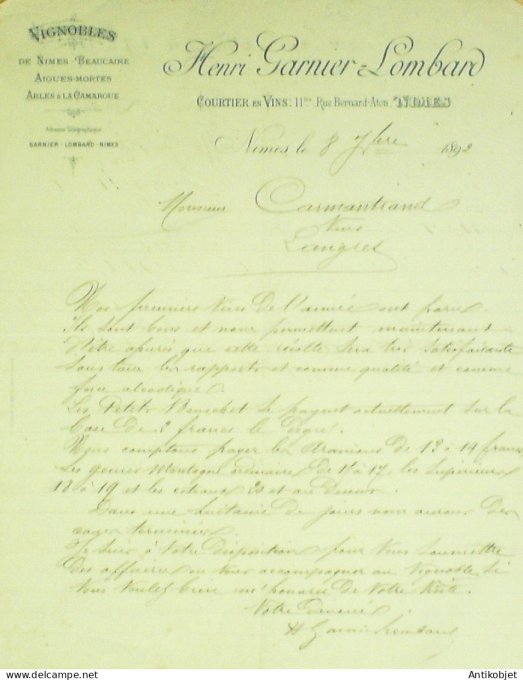 VIGNOBLES
DE NIMES BEAUCAIRE
AIGUES-MORTES
ARLES & LA CAMARGUE
Adresse Télégraphique
GARNIER-LOMBARD-NIMES
Henri Garnier-Lombard
COURTIER EN VINS: 11 Rue Bernard-Aton, NIMES
Nimes, le 8 7bre 1892
Monsieur Carmantrand
Vins
Langres
Nos premiers vins de l'année ont paru.
Ils sont bons et nous permettent maintenant
d'être assurés que cette récolte sera très satisfaisante
sous tous les rapports et comme qualité et comme
force alcoolique.
Les Petits Bouschet se payent actuellement sur la
base de 2 francs le degré.
Nous comptons payer les Aramons de 13 à 14 francs
Les genres Montagne ordinaires de 15 à 17, les Supérieurs
18 à 19 et les extras 20 et au dessus.
Dans une huitaine de jours nous aurons des
terminées
Je suis à votre disposition pour vous soumettre
des affaires ou vous accompagner au Vignoble si
vous voulez bien m'honorer de votre visite.
Votre dévoué
H Garnier Lombard
© Antikobjet